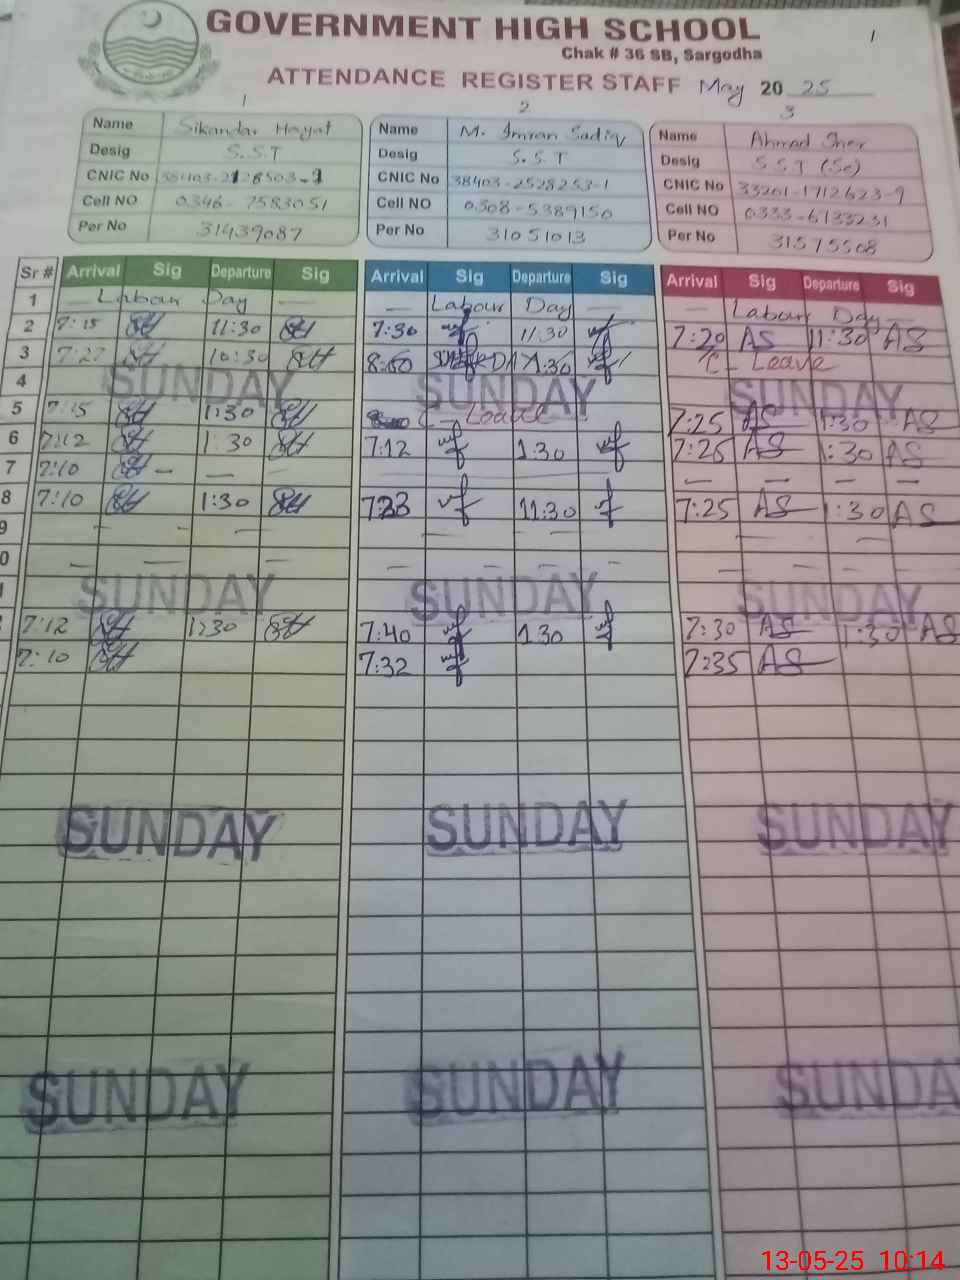 GOVERNMENT HIGH SCHOOL
1
Chak # 36 SB, Sargodha
ATTENDANCE REGISTER STAFF May 20 25
1 2 3
Name Sikandar Hayat Name M. Imran Sadiq Name Ahmad Sher
Desig S.S.T Desig S.S.T Desig S S T (Sc)
CNIC No CNIC No 38403-2528253-1 CNIC No 33201-1712623-9
Cell NO 0346-7583051 Cell NO 0308-5389150 Cell NO 0333-6133231
Per No 31439087 Per No 31051013 Per No 31575508
Sr # Arrival Sig Departure Sig Arrival Sig Departure Sig Arrival Sig Departure Sig
1 — Labour Day — — Labour Day — — Labour Day —
2 7:15 SH 11:30 SH 7:30 11:30 7:20 AS 11:30 AS
3 7:27 SH 10:30 SH C- Leave
4 SUNDAY SUNDAY SUNDAY
5 7:15 SH 1:30 SH C- Leave 7:25 AS 1:30 AS
6 7:12 SH 1:30 SH 7:12 1:30 7:25 AS 1:30 AS
7 7:10 SH — — — — — — — — — — —
8 7:10 SH 1:30 SH 7:33 11:30 7:25 AS 1:30 AS
9 — — — — — — — —
0 — — — — — — — — — —
SUNDAY SUNDAY SUNDAY
7:12 SH 1:30 SH 7:40 1:30 7:30 AS 1:30 AS
7:10 SH 7:32 7:35 AS
SUNDAY SUNDAY SUNDAY
SUNDAY SUNDAY SUNDA
13-05-25 10:14